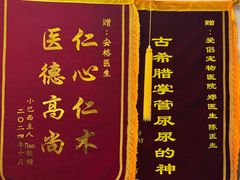 赠：安格医生
仁心仁术
医德高尚
小巴西主人
Ben敬赠
二〇二四年十月
赠：爱侣宠物医院郑医生 陈医生
古希腊掌管尿尿的神